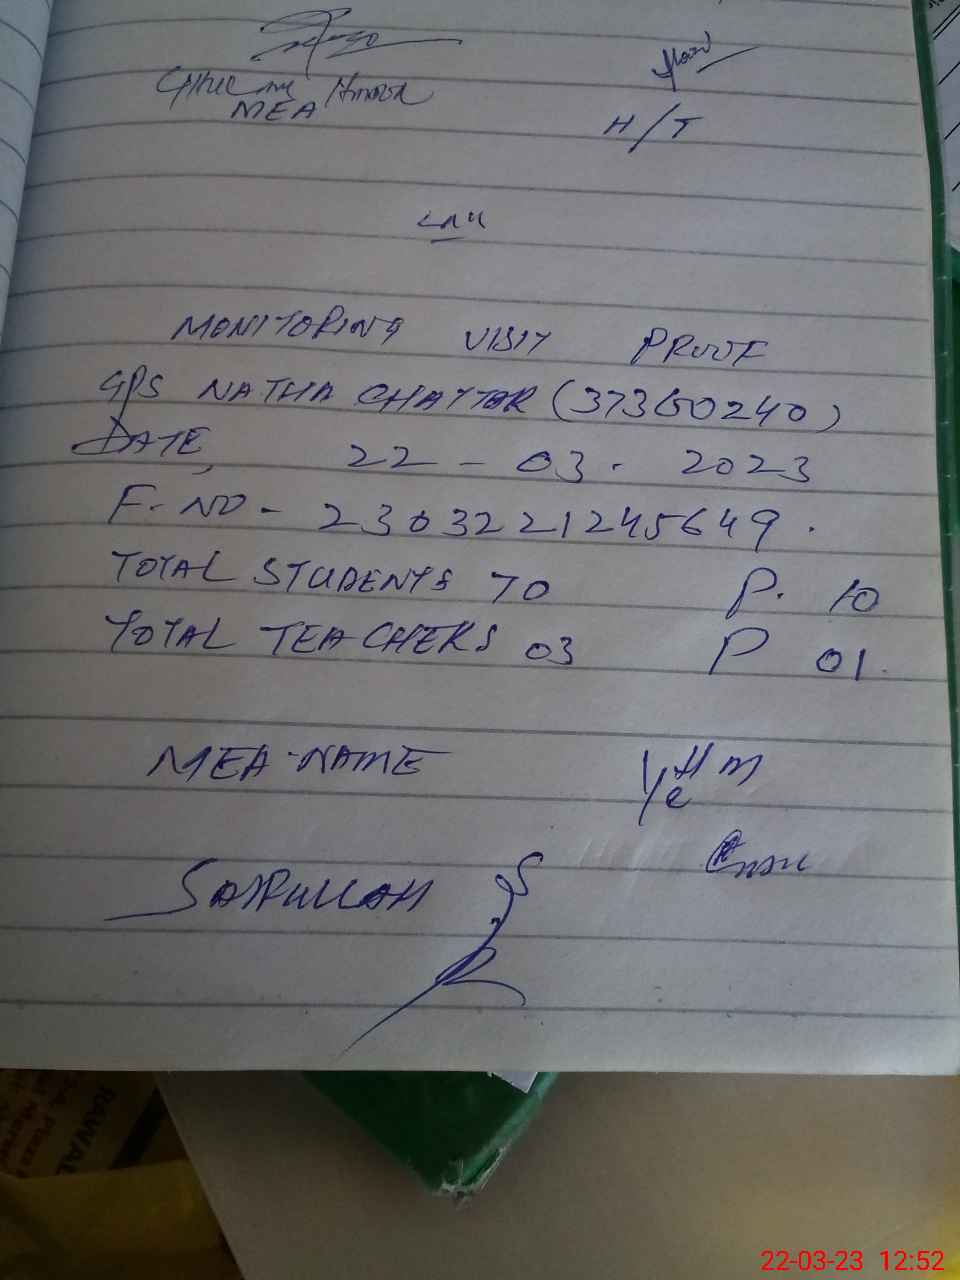 MEA
H/T
MONITORING VISIT PROOF
GPS NATHA CHATTAR (37360240)
DATE, 22-03. 2023
F. NO - 2303221245649.
TOTAL STUDENTS 70 P. 10
TOTAL TEACHERS 03 P 01.
MEA-NAME I/C H M
SAIFULLAH
RAWAL
22-03-23 12:52